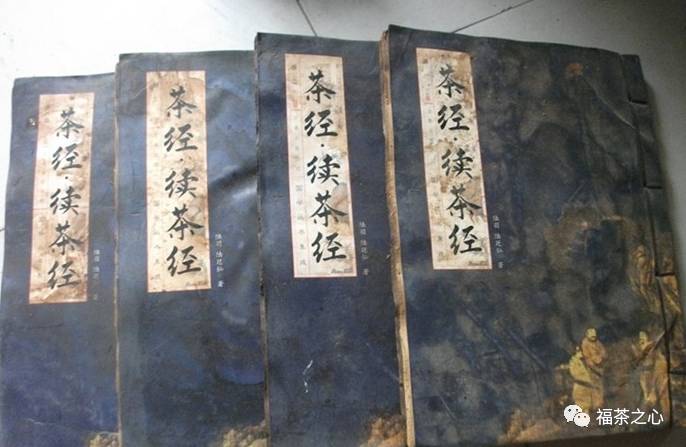 茶经·续茶经
茶经·续茶经
陆羽 陆廷灿 著
茶经·续茶经
陆羽 陆廷灿 著
茶经·续茶经
陆羽 陆廷灿 著
福茶之心